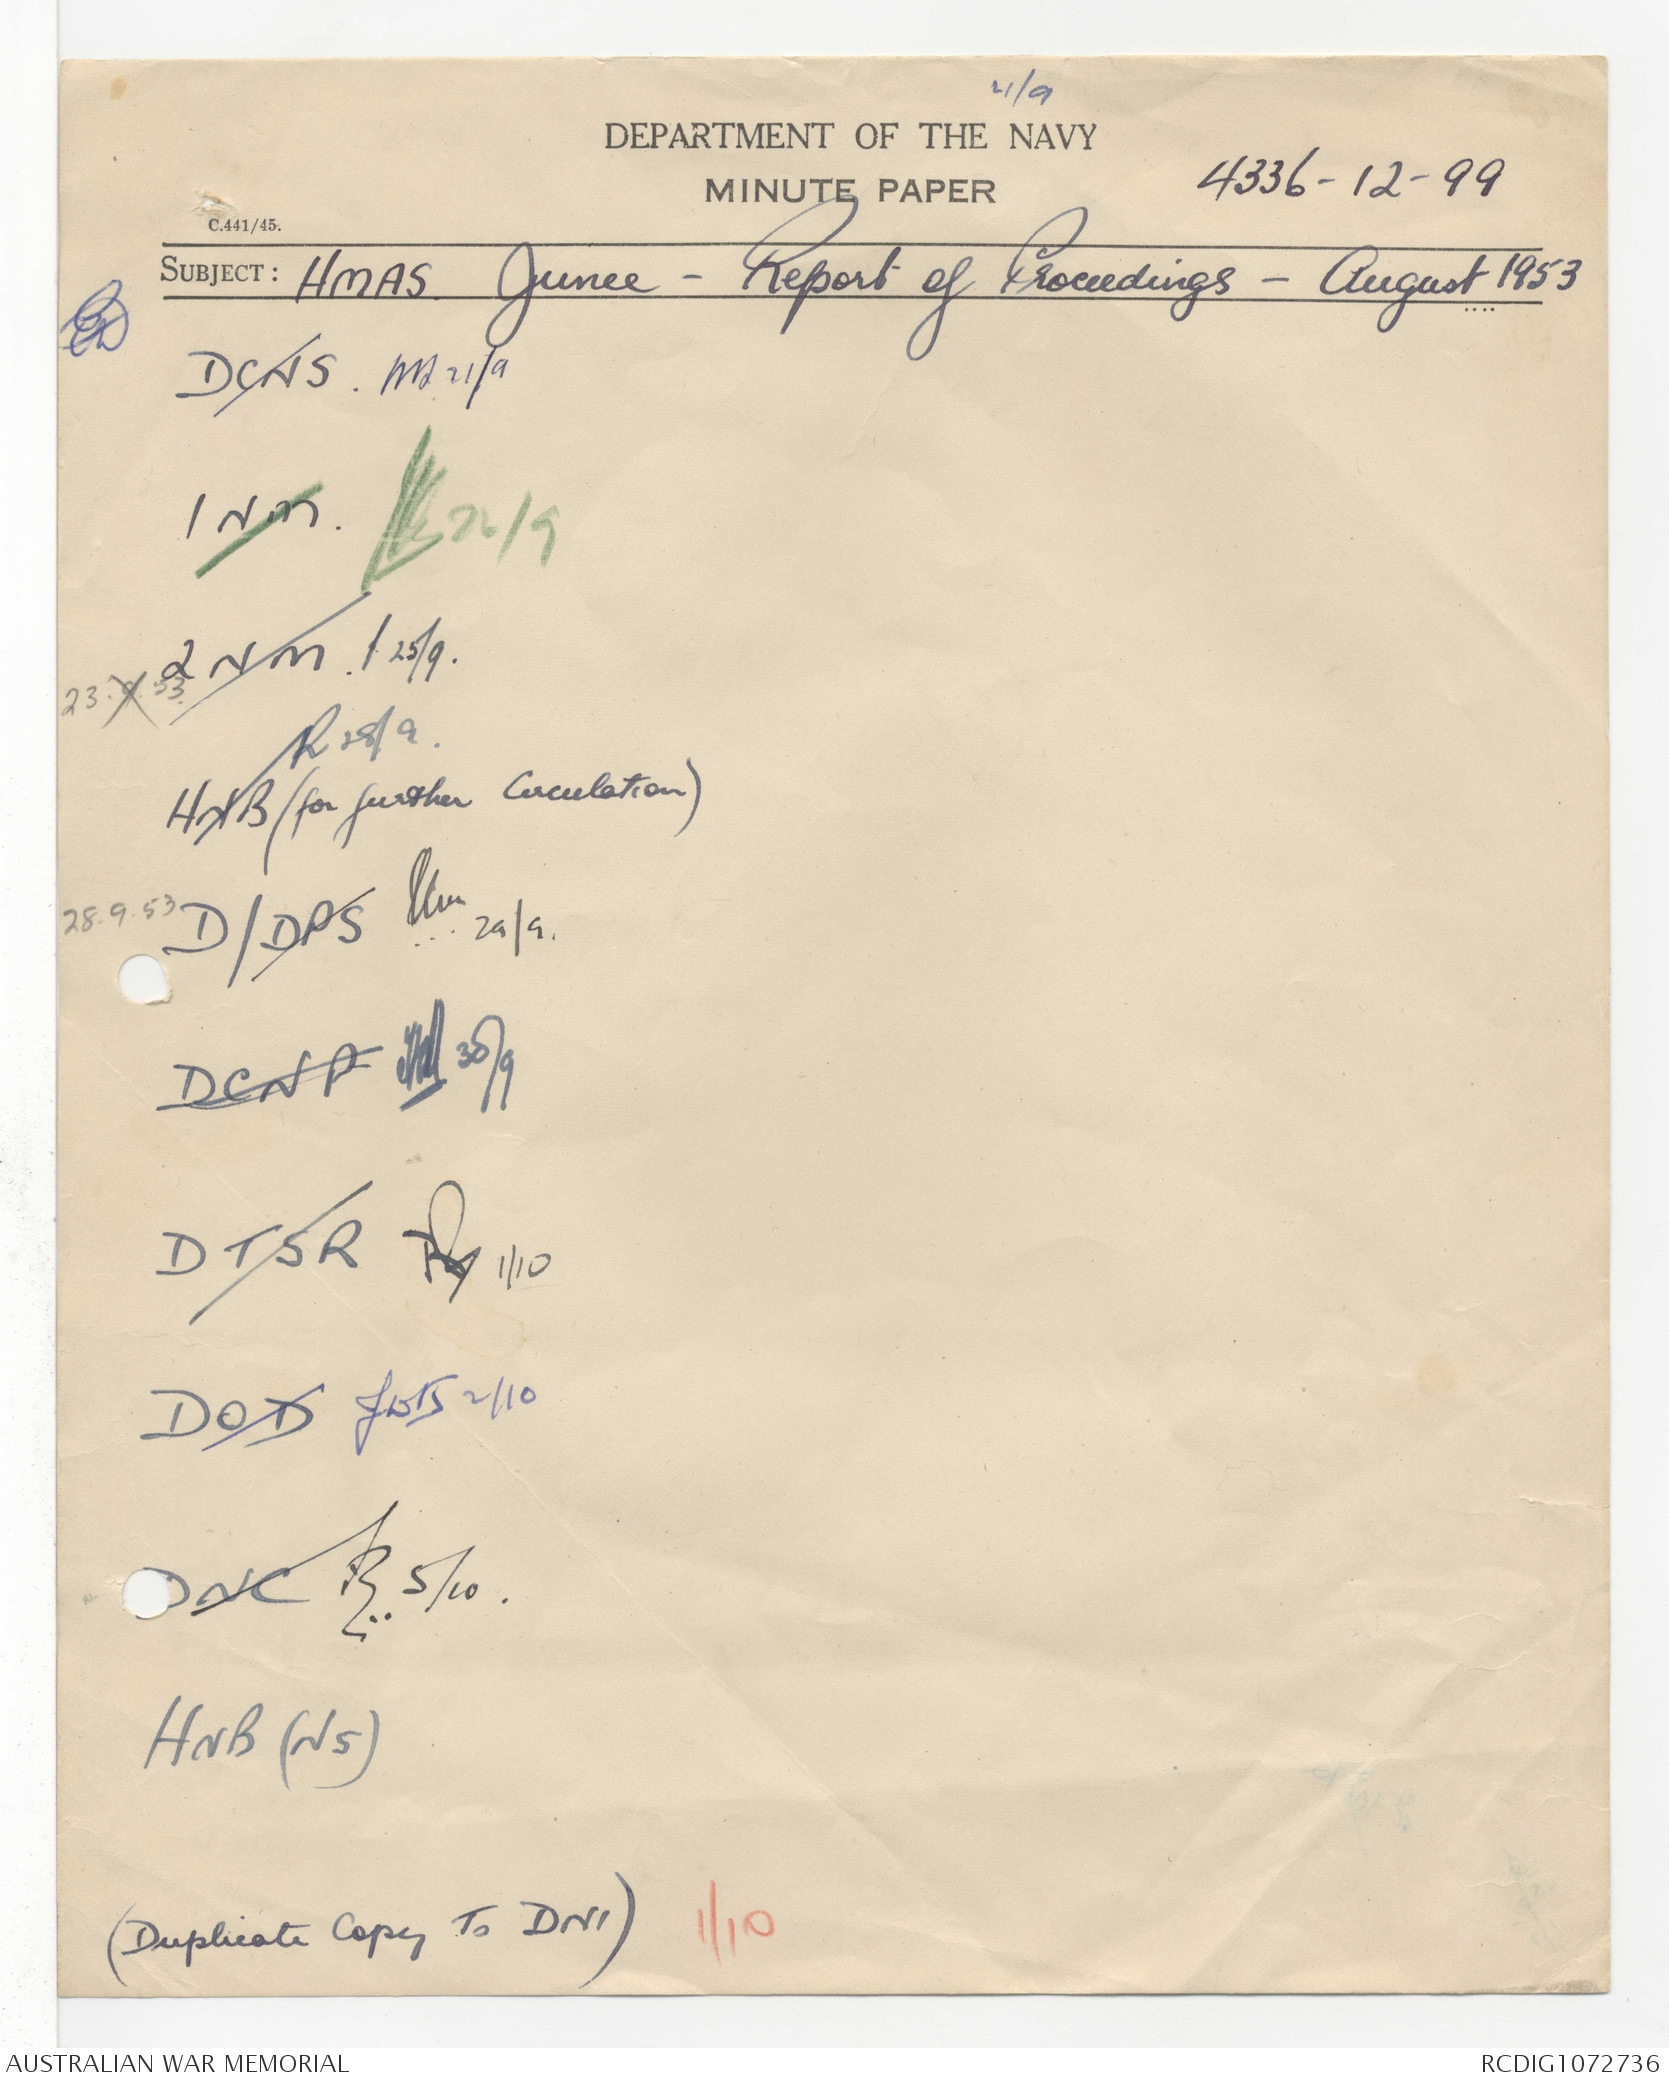 21/9
DEPARTMENT OF THE NAVY
MINUTE PAPER
4336-12-99
C.441/45.
SUBJECT: HMAS Junee - Report of Proceedings - August 1953
DCNS. 21/9
1NM. 26/9
2NM. 25/9.
23.9.53
28/9.
HNB (for further Circulation)
28.9.53
D/DPS 29/9.
DCNP 30/9
DTSR 1/10
DOD 2/10
DNC 5/10.
HNB (N5)
(Duplicate Copy To DNI) 1/10
AUSTRALIAN WAR MEMORIAL
RCDIG1072736